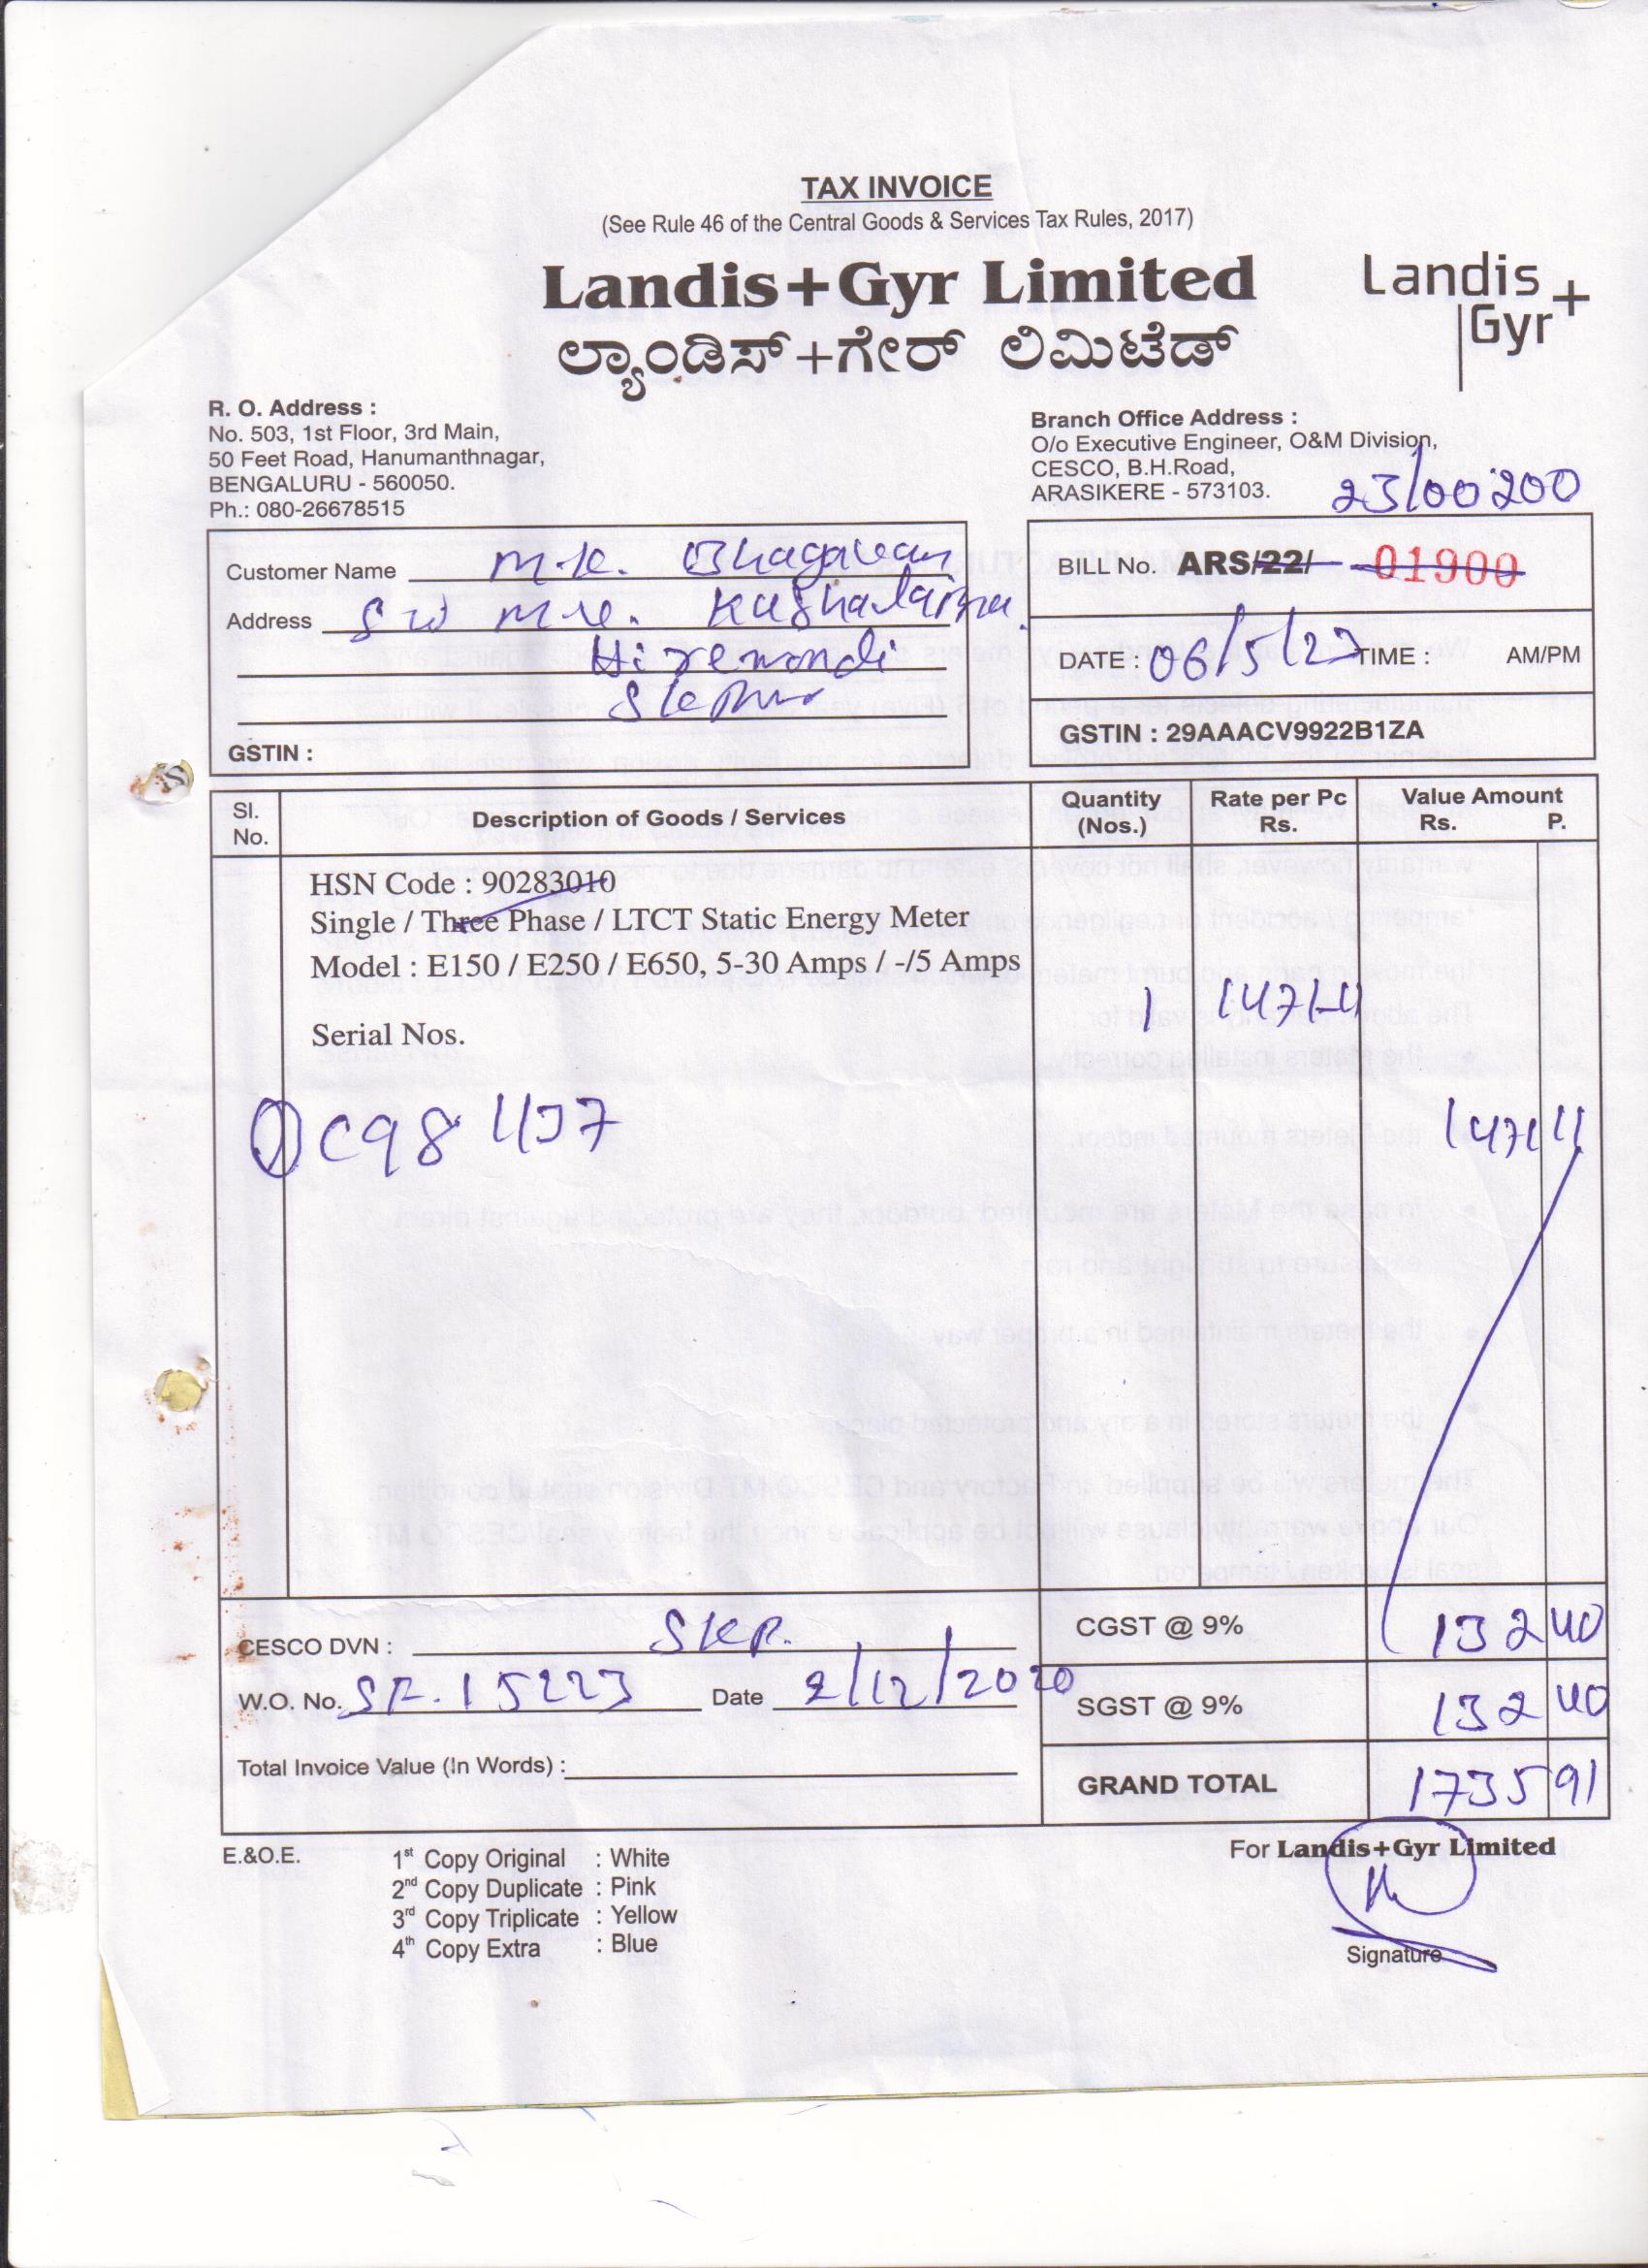 TAX INVOICE
(See Rule 46 of the Central Goods & Services Tax Rules, 2017)
Landis+Gyr Limited
ಲ್ಯಾಂಡಿಸ್+ಗೇರ್ ಲಿಮಿಟೆಡ್
Landis
Gyr+
R. O. Address :
No. 503, 1st Floor, 3rd Main,
50 Feet Road, Hanumanthnagar,
BENGALURU - 560050.
Ph.: 080-26678515
Branch Office Address :
O/o Executive Engineer, O&M Division,
CESCO, B.H.Road,
ARASIKERE - 573103.
23/00200
Customer Name M.K. Bhagavan
Address S/o M.K.
GSTIN :
BILL No. ARS/22/ 01900
DATE : 06/5/23 TIME : AM/PM
GSTIN : 29AAACV9922B1ZA
Sl. No. Description of Goods / Services Quantity (Nos.) Rate per Pc Rs. Value Amount Rs. P.
HSN Code : 90283010
Single / Three Phase / LTCT Static Energy Meter
Model : E150 / E250 / E650, 5-30 Amps / -/5 Amps
1 1471-11
Serial Nos.
① C98 1137
1471 11
CESCO DVN : SKP.
CGST @ 9% 132 40
W.O. No. SR.15223 Date 2/12/2020
SGST @ 9% 132 40
Total Invoice Value (In Words) :
GRAND TOTAL 1735 91
E.&O.E.
1st Copy Original : White
2nd Copy Duplicate : Pink
3rd Copy Triplicate : Yellow
4th Copy Extra : Blue
For Landis+Gyr Limited
Signature